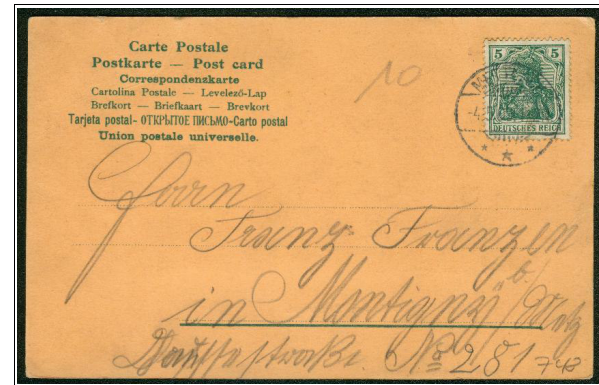 Carte Postale
Postkarte — Post card
Correspondenzkarte
Cartolina Postale — Levelező-Lap
Brefkort — Briefkaart — Brevkort
Tarjeta postal- ОТКРЫТОЕ ПИСЬМО-Carto postal
Union postale universelle.
10
5 5
DEUTSCHES REICH
Herrn
Franz Franzen
in Montigny b/ Metz
No 281
748